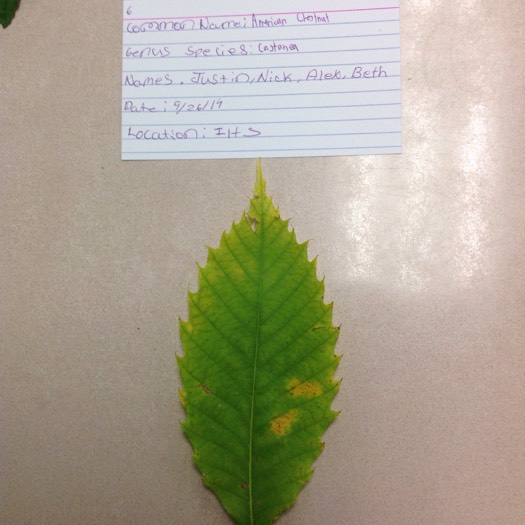 6
Common Name: American Chestnut
Genus species: Castanea
Names. Justin, Nick, Alek, Beth
Date: 9/26/19
Location: IHS